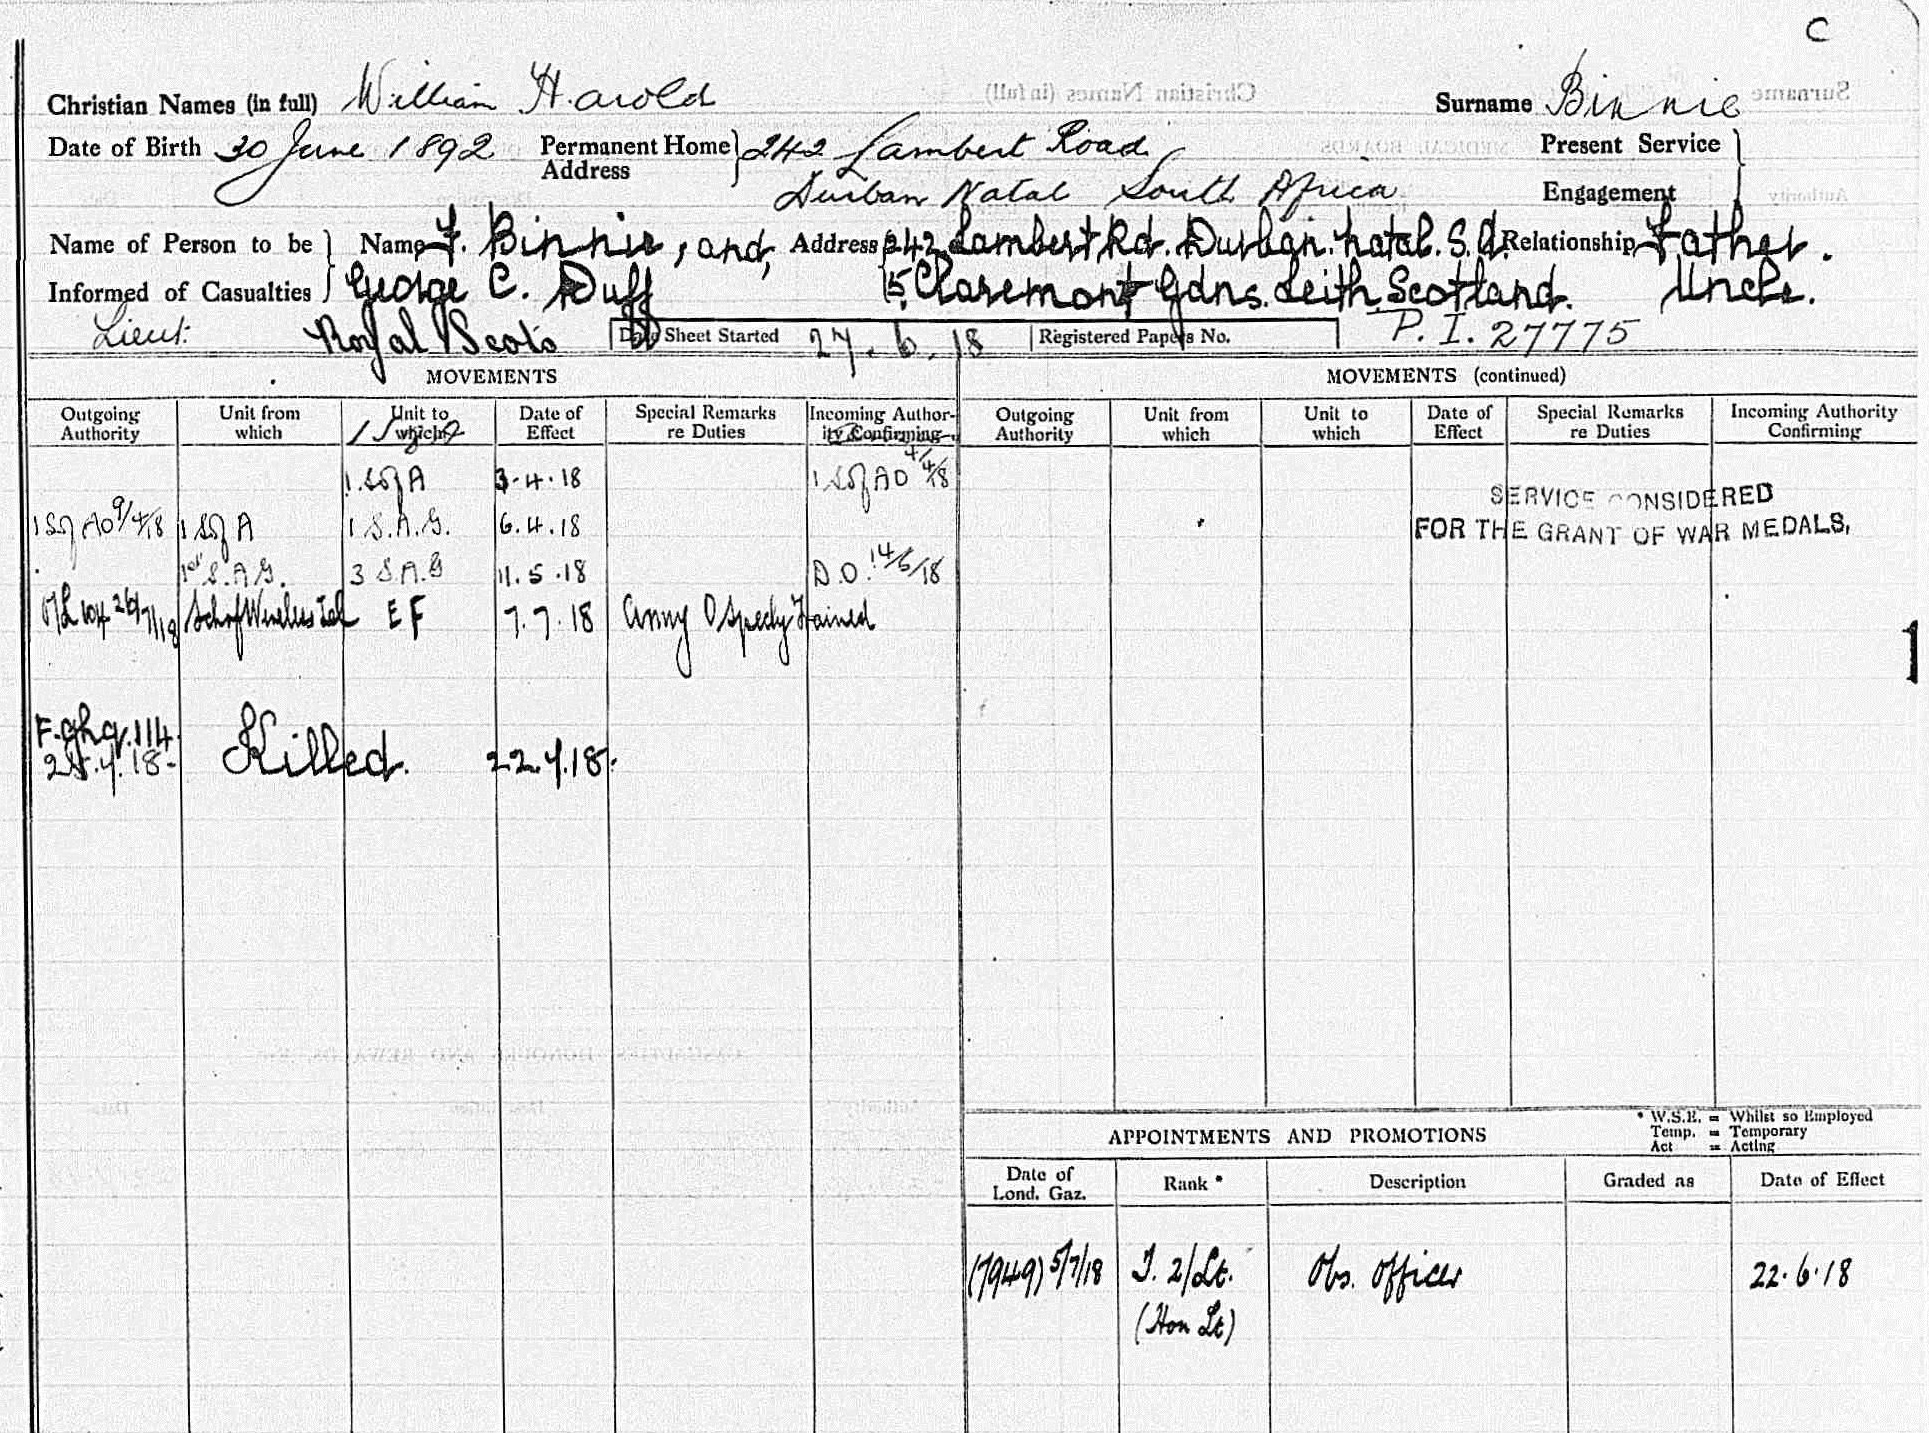 C
Christian Names (in full) William Harold Surname Binnie
Date of Birth 30 June 1892 Permanent Home Address 242 Lambert Road Present Service
Durban Natal South Africa Engagement
Name of Person to be Name F. Binnie, and, Address 242 Lambert Rd. Durban. Natal. S.A. Relationship Father.
Informed of Casualties George C. Duff 5, Claremont Gdns. Leith Scotland. Uncle.
Lieut. Royal Scots Date Sheet Started 27.6.18 Registered Papers No. P.I. 27775
MOVEMENTS MOVEMENTS (continued)
Outgoing Authority Unit from which Unit to which Date of Effect Special Remarks re Duties Incoming Authority Confirming Outgoing Authority Unit from which Unit to which Date of Effect Special Remarks re Duties Incoming Authority Confirming
1 S of A 3.4.18 1 S of A O 4/4/18
SERVICE CONSIDERED
FOR THE GRANT OF WAR MEDALS,
1 S of A O 9/4/18 1 S of A 1 S.A.G. 6.4.18
1st S.A.G. 3 S.A.G 11.5.18 D.O. 14/5/18
26/7/18 Sch of Wireless Tel E F 7.7.18 Army O Specly Trained
F.Ghq.114.
25.7.18- Killed. 22.7.18.
* W.S.E. = Whilst so Employed
Temp. = Temporary
Act = Acting
APPOINTMENTS AND PROMOTIONS
Date of Lond. Gaz. Rank * Description Graded as Date of Effect
(7949) 5/7/18 T. 2/Lt. Obs. Officer 22.6.18
(Hon Lt)
1